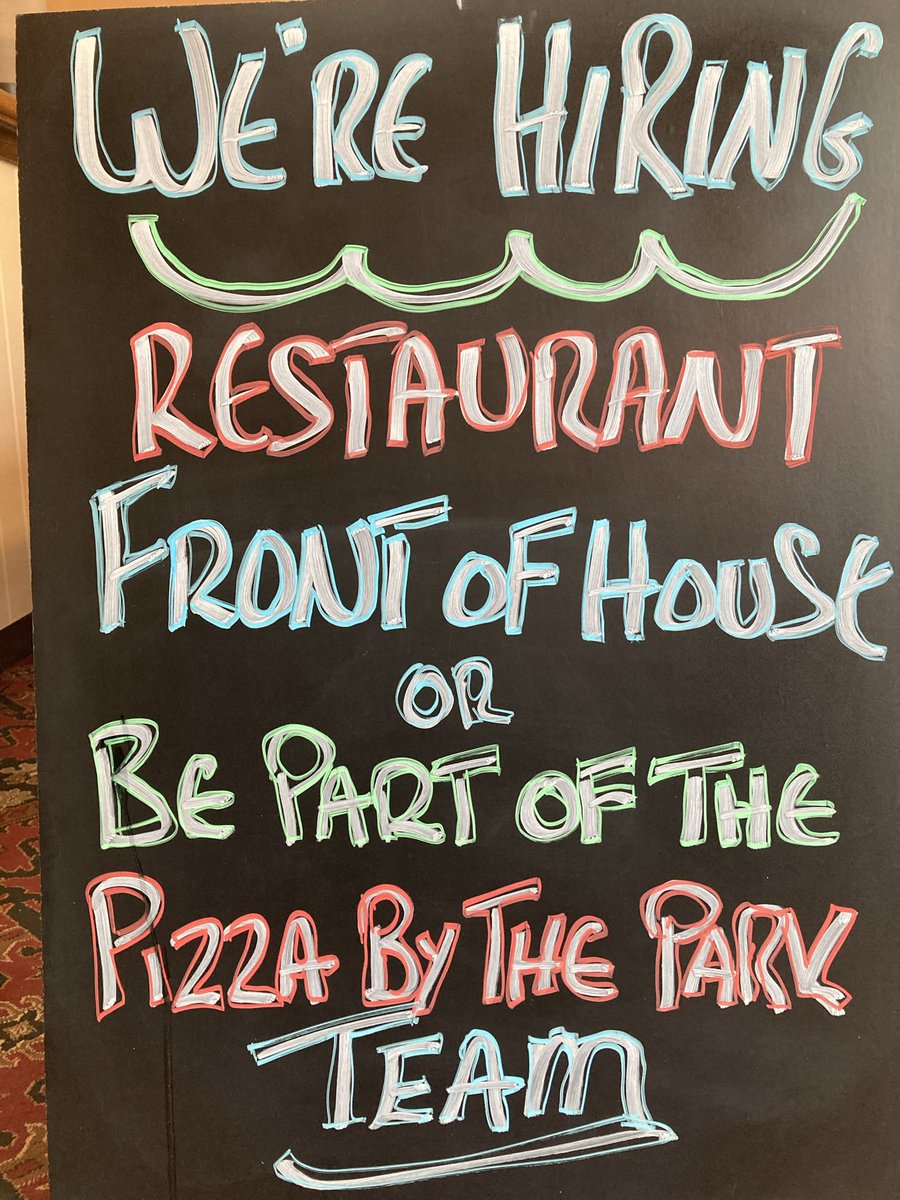 WE'RE HIRING
RESTAURANT
FRONT OF HOUSE
OR
BE PART OF THE
PIZZA BY THE PARK
TEAM